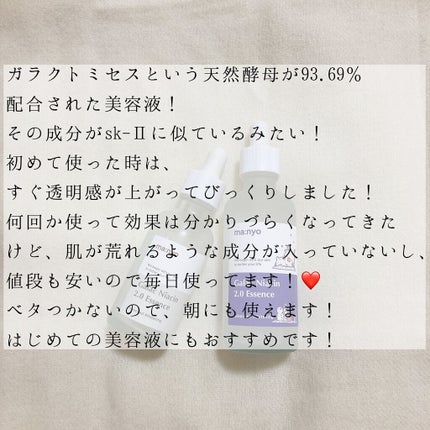 ガラクトミセスという天然酵母が93.69%
配合された美容液！
その成分がsk-Ⅱに似ているみたい！
初めて使った時は、
すぐ透明感が上がってびっくりしました！
何回か使って効果は分かりづらくなってきた
けど、肌が荒れるような成分が入っていないし、
値段も安いので毎日使ってます！❤️
ベタつかないので、朝にも使えます！
はじめての美容液にもおすすめです！
ma:nyo
Niacin
2.0 Essence